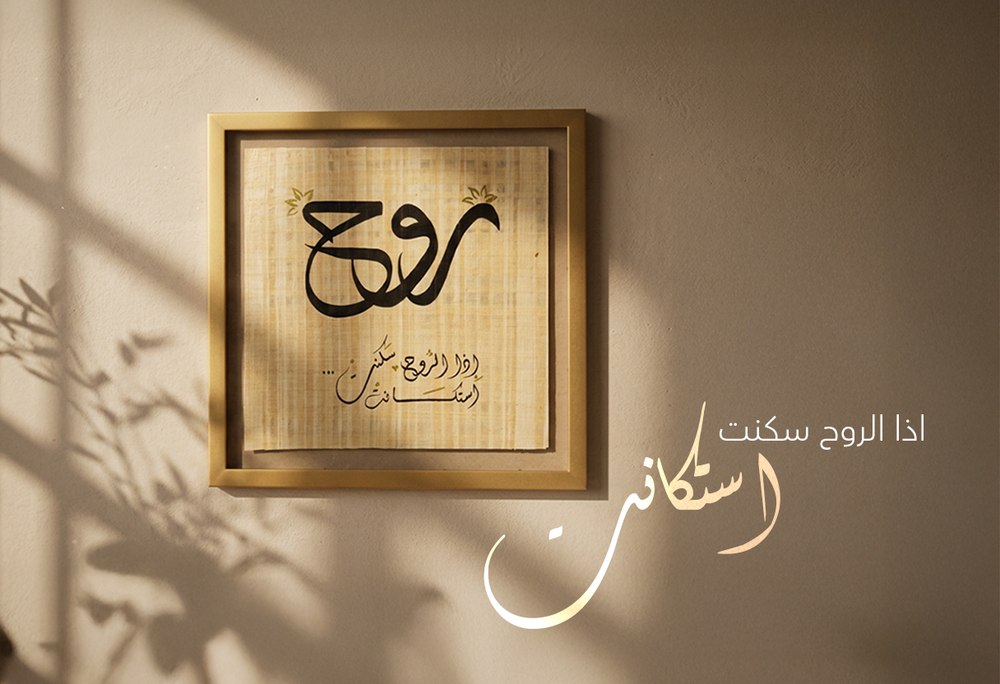 روح
إذا الرُّوح سَكنت ...
إستكانت
اذا الروح سكنت
استكانت